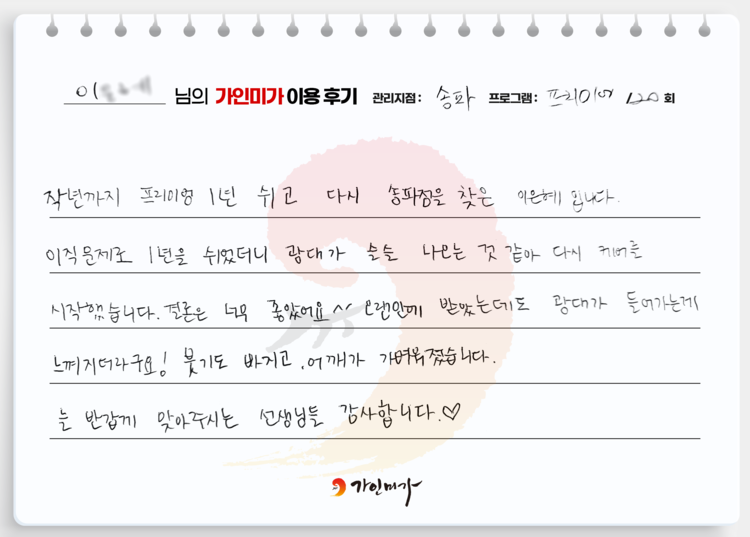 이 님의 가인미가 이용 후기 관리지점 : 송파 프로그램 : 프리미어 120 회
작년까지 프리미엄 1년 쉬고 다시 송파점을 찾은 이은혜입니다.
이직문제로 1년을 쉬었더니 광대가 슬슬 나오는 것 같아 다시 케어를
시작했습니다. 결론은 너무 좋았어요^^ 오랜만에 받았는데도 광대가 들어가는게
느껴지더라구요! 붓기도 빠지고, 어깨가 가벼워졌습니다.
늘 반갑게 맞아주시는 선생님들 감사합니다.♡
가인미가